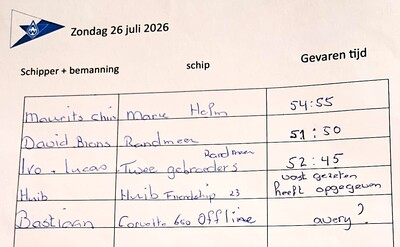 Zondag 26 juli 2026
Schipper + bemanning schip Gevaren tijd
Maurits Chris Mark Helm 54:55
David Bions Randmeer 51:50
Ivo + Lucas Twee gebroeders Randmeer 52:45
Huib Huib Friendship 23 vast gezeten
heeft opgegeven
Bastiaan 600 Offline avery?